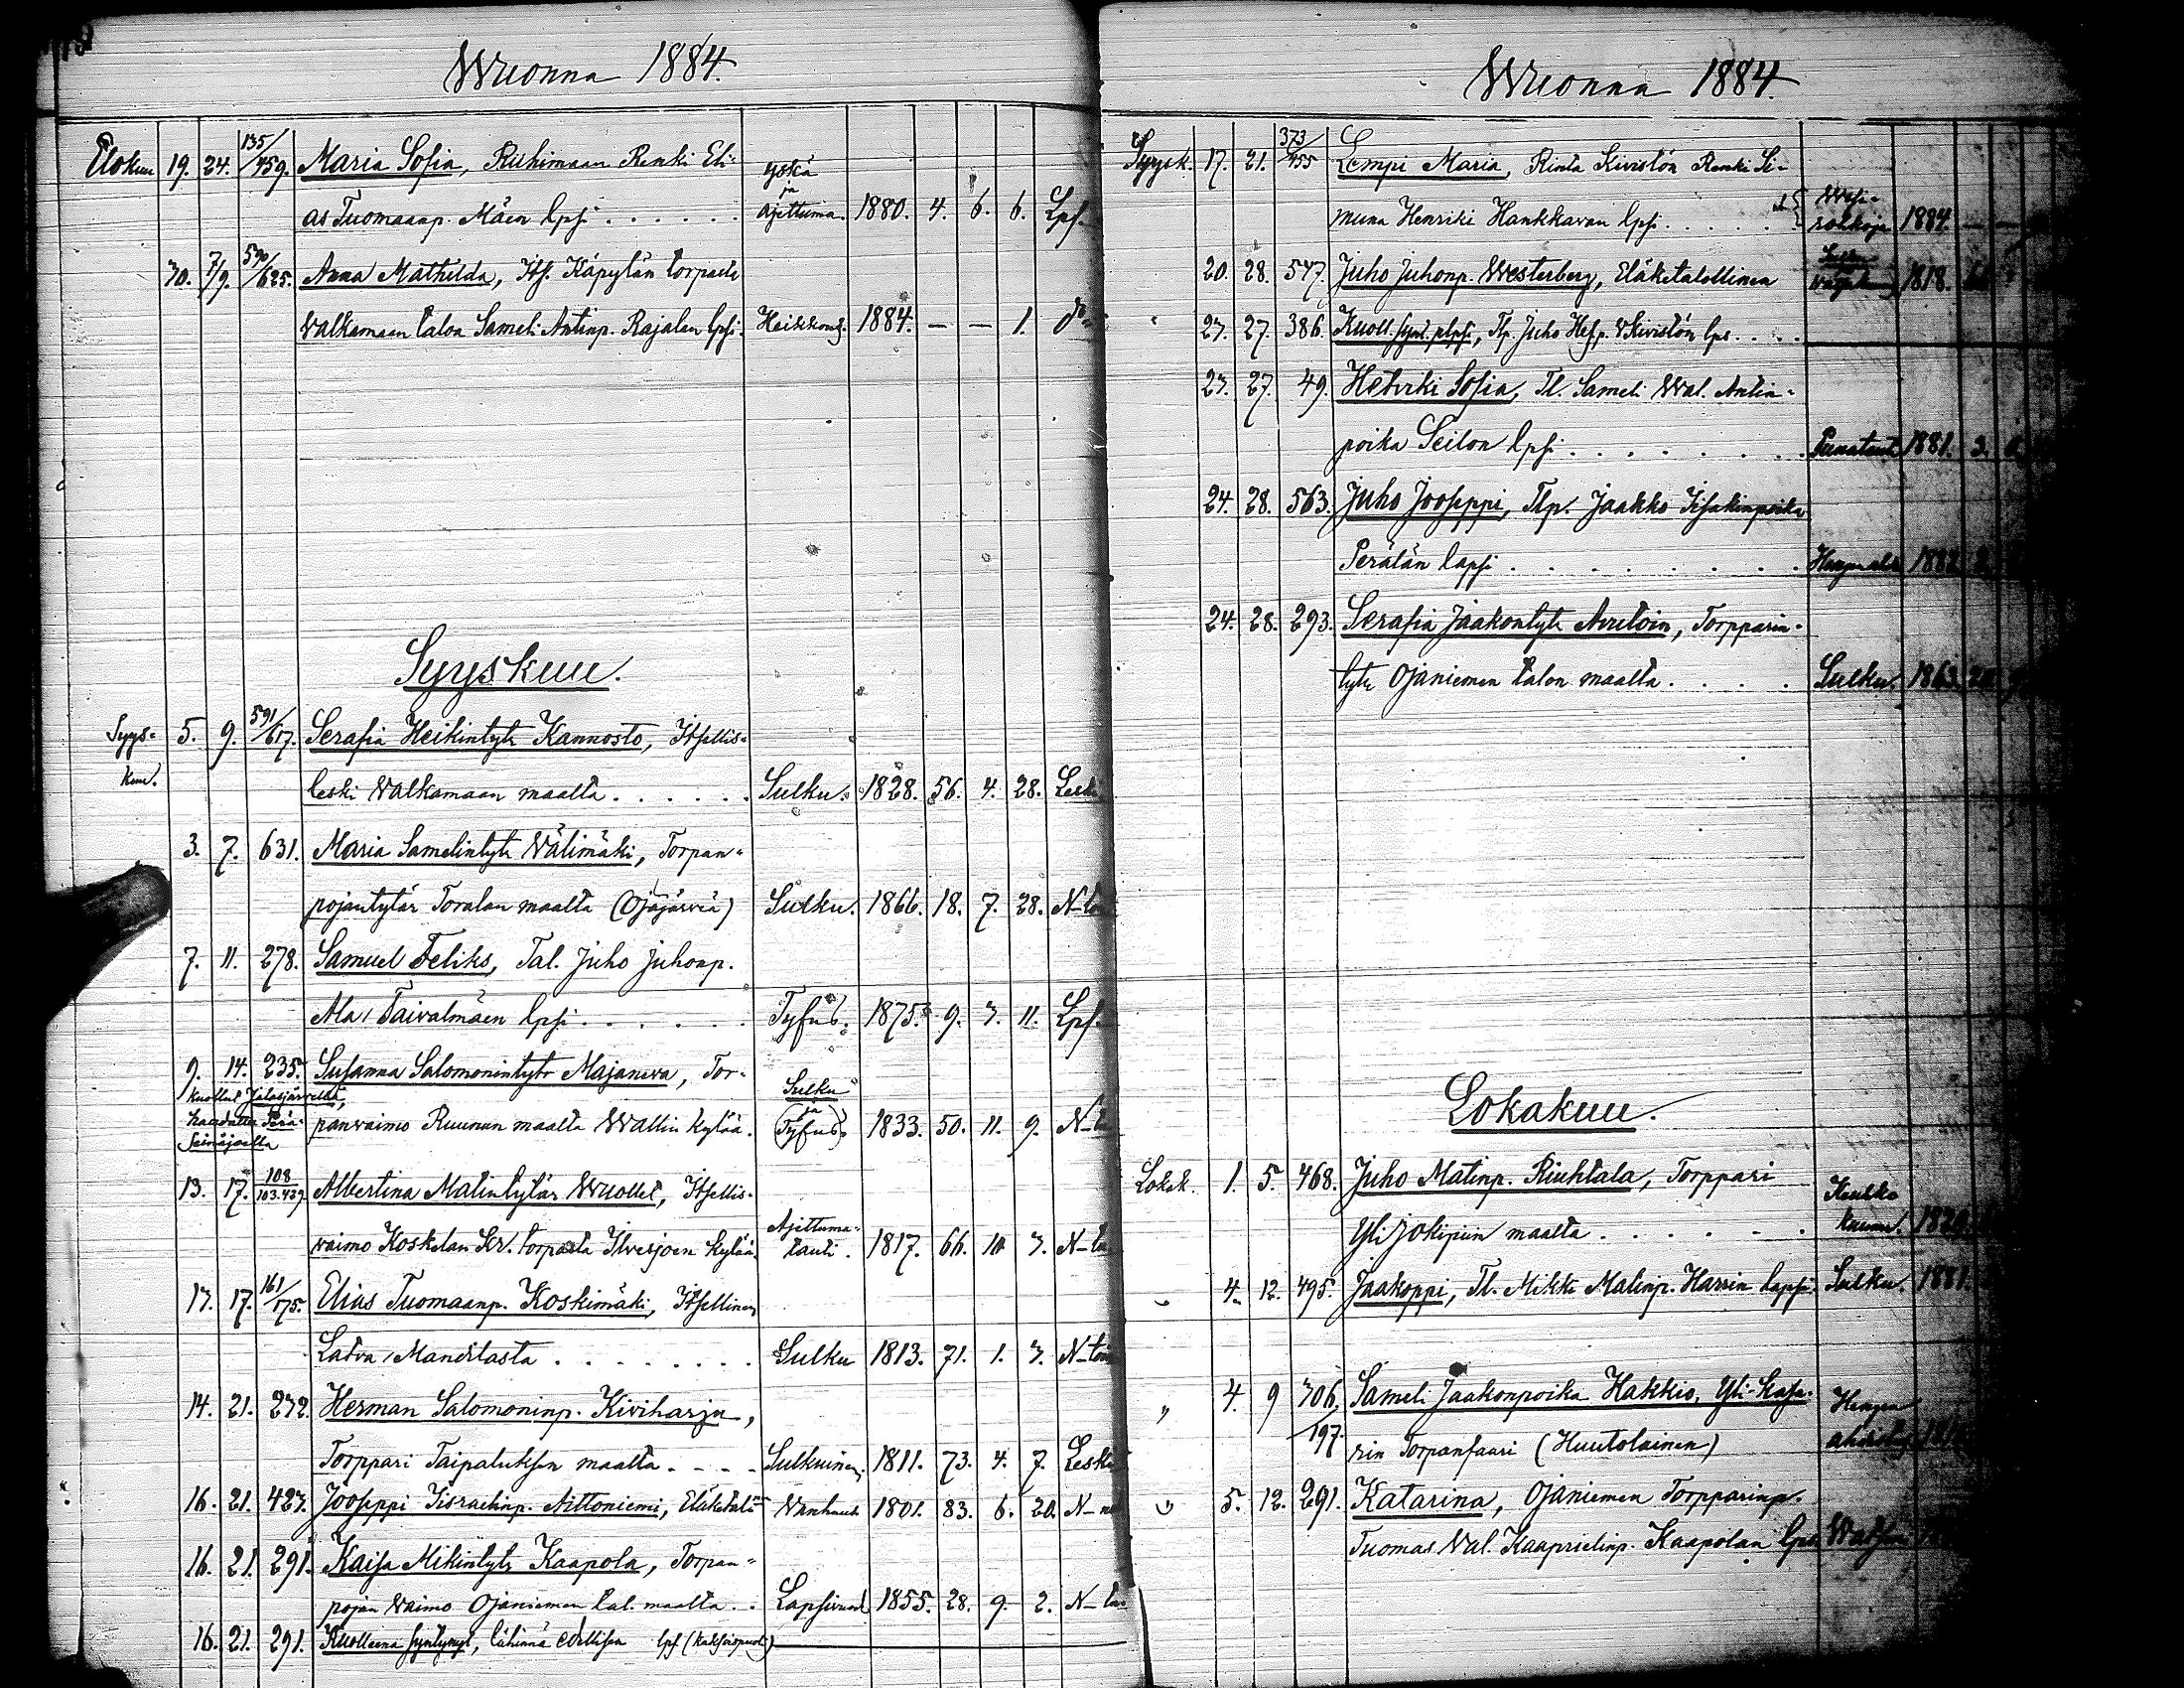 Wuonna 1884.
Elokuu 19. 24. 135/459. Maria Sofia, Ruhimaan Renki Eli- yskä
as Tuomaanp. Mäen lpsi . . . . . . ja Ajettuma. 1880. 4. 6. 6. Lps.
30. 7/9. 590/625. Anna Mathilda, Its. Käpylän torpasta
Walkamaan taloa Sameli Antinp. Rajalan lpsi. Heikkous. 1884. — — 1. do
Syyskuu.
Syys- 5. 9. 591/617. Serafia Heikintytr Kannosto, Itsellis-
kuu. leski Walkamaan maalta . . . . . . Sulku. 1828. 56. 4. 28. Leski
3. 7. 631. Maria Samelintytr Wälimäki, Torpan-
pojantytär Toralan maalta (Ojajärviä) Sulku. 1866. 18. 7. 28.
7. 11. 278. Samuel Feliks, Tal. Juho Juhonp.
Ala-Taivalmäen lpsi . . . . . . Tyfus. 1875. 9. 3. 11. Lps.
9. 14. 235. Susanna Salomonintytr Majaneva, Tor-
kuollut Jalasjärvellä, Sulku
haudattu Perä- panwaimo Ruunun maalta Wallin kylää. ja (Tyfus) 1833. 50. 11. 9.
Seinäjoella
13. 17. 108/103.439 Albertina Matintytär Wuollet, Itsellis-
waimo Koskelan Kr. torpasta Ilvesjoen kylää. Ajettuma- tauti. 1817. 66. 10. 3.
13. 17. 161/175. Elias Tuomaanp. Koskimäki, Itsellinen
Latva, Mandilasta . . . . . . . Sulku 1813. 71. 1. 3.
14. 21. 272. Herman Salomoninp. Kiviharju,
Torppari Taipaluksen maalta . . . . Sulkuinen. 1811. 73. 4. 7. Leski
16. 21. 423. Jooseppi Iisraelinp. Aittoniemi, Eläketal. Wanhuus 1801. 83. 6. 20.
16. 21. 291. Kaisa Mikintytr Kaapola, Torpan-
pojan Waimo Ojaniemen tal. maalta . . Lapsivuod. 1855. 28. 9. 2.
16. 21. 291. Kuolleena syntynyt, lähinnä edellisen lps. (kaksoispuoli)
Wuonna 1884.
Syysk. 17. 21. 373/455 Lempi Maria, Rinta Kivistön Renki Si-
muna Henriki Hankkavan lpsi . . . . . Wesi- rokkoja 1884. — —
20. 28. 547. Juho Juhonp. Westerberg, Eläketalollinen 1818.
23. 27. 386. Kuoll. synt. plpsi, Tp. Juho Hes.p. WKivistön lps . . . .
23. 27. 49. Hetviki Sofia, Tl. Sameli Wal. Antin-
poika Seilon lpsi . . . . . . . Punataut. 1881. 3.
24. 28. 563. Juho Jooseppi, Tlp. Jaakko Iisakinpoika
Perälän lapsi . . . . . . . . 1882. 2.
24. 28. 293. Serafia Jaakontytr Anttoin, Torpparin-
tytr Ojaniemen talon maalta . . . . Sulku. 1863. 20.
Lokakuu.
Lokak. 1. 5. 468. Juho Matinp. Riuhtala, Torppari
Yli Jokipiin maalta . . . . . . Keuhko kuume.
4. 12. 495. Jaakoppi, Tl. Mikki Matinp. Harrin lapsi. Sulku. 1881.
" 4. 9 306. Sameli Jaakonpoika Hakkio, Yli-Kasa-
/197. rin Torpanfaari (Huutolainen) Hengen ahdistus
5. 12. 291. Katarina, Ojaniemen Torpparinp.
Tuomas Wal. Kaaprielinp. Kaapolan lps.